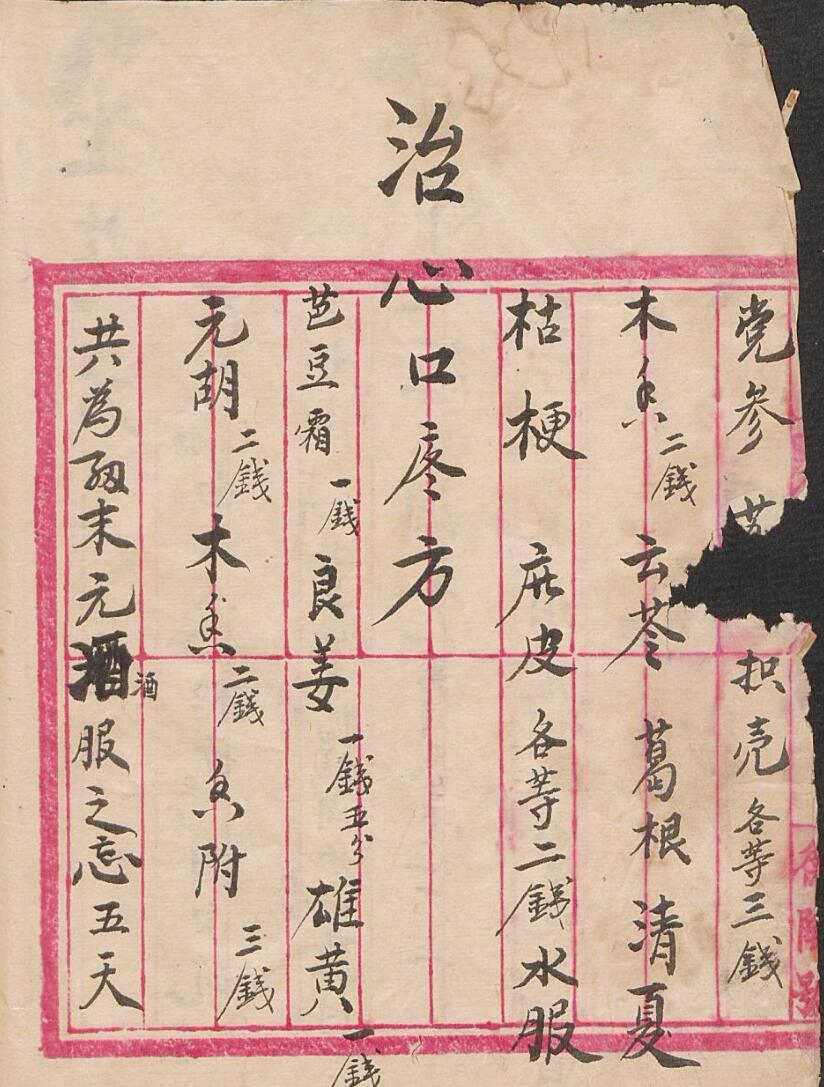 党参 苏 扒壳各等三錢
木香二錢 云苓 葛根 清夏
枯梗 麻皮各等二錢水服
治心口疼方
芭豆霜一錢 良姜一錢五分 雄黄一錢
元胡二錢 木香二錢 香附三錢
共為細末元酒酒服之忘五天